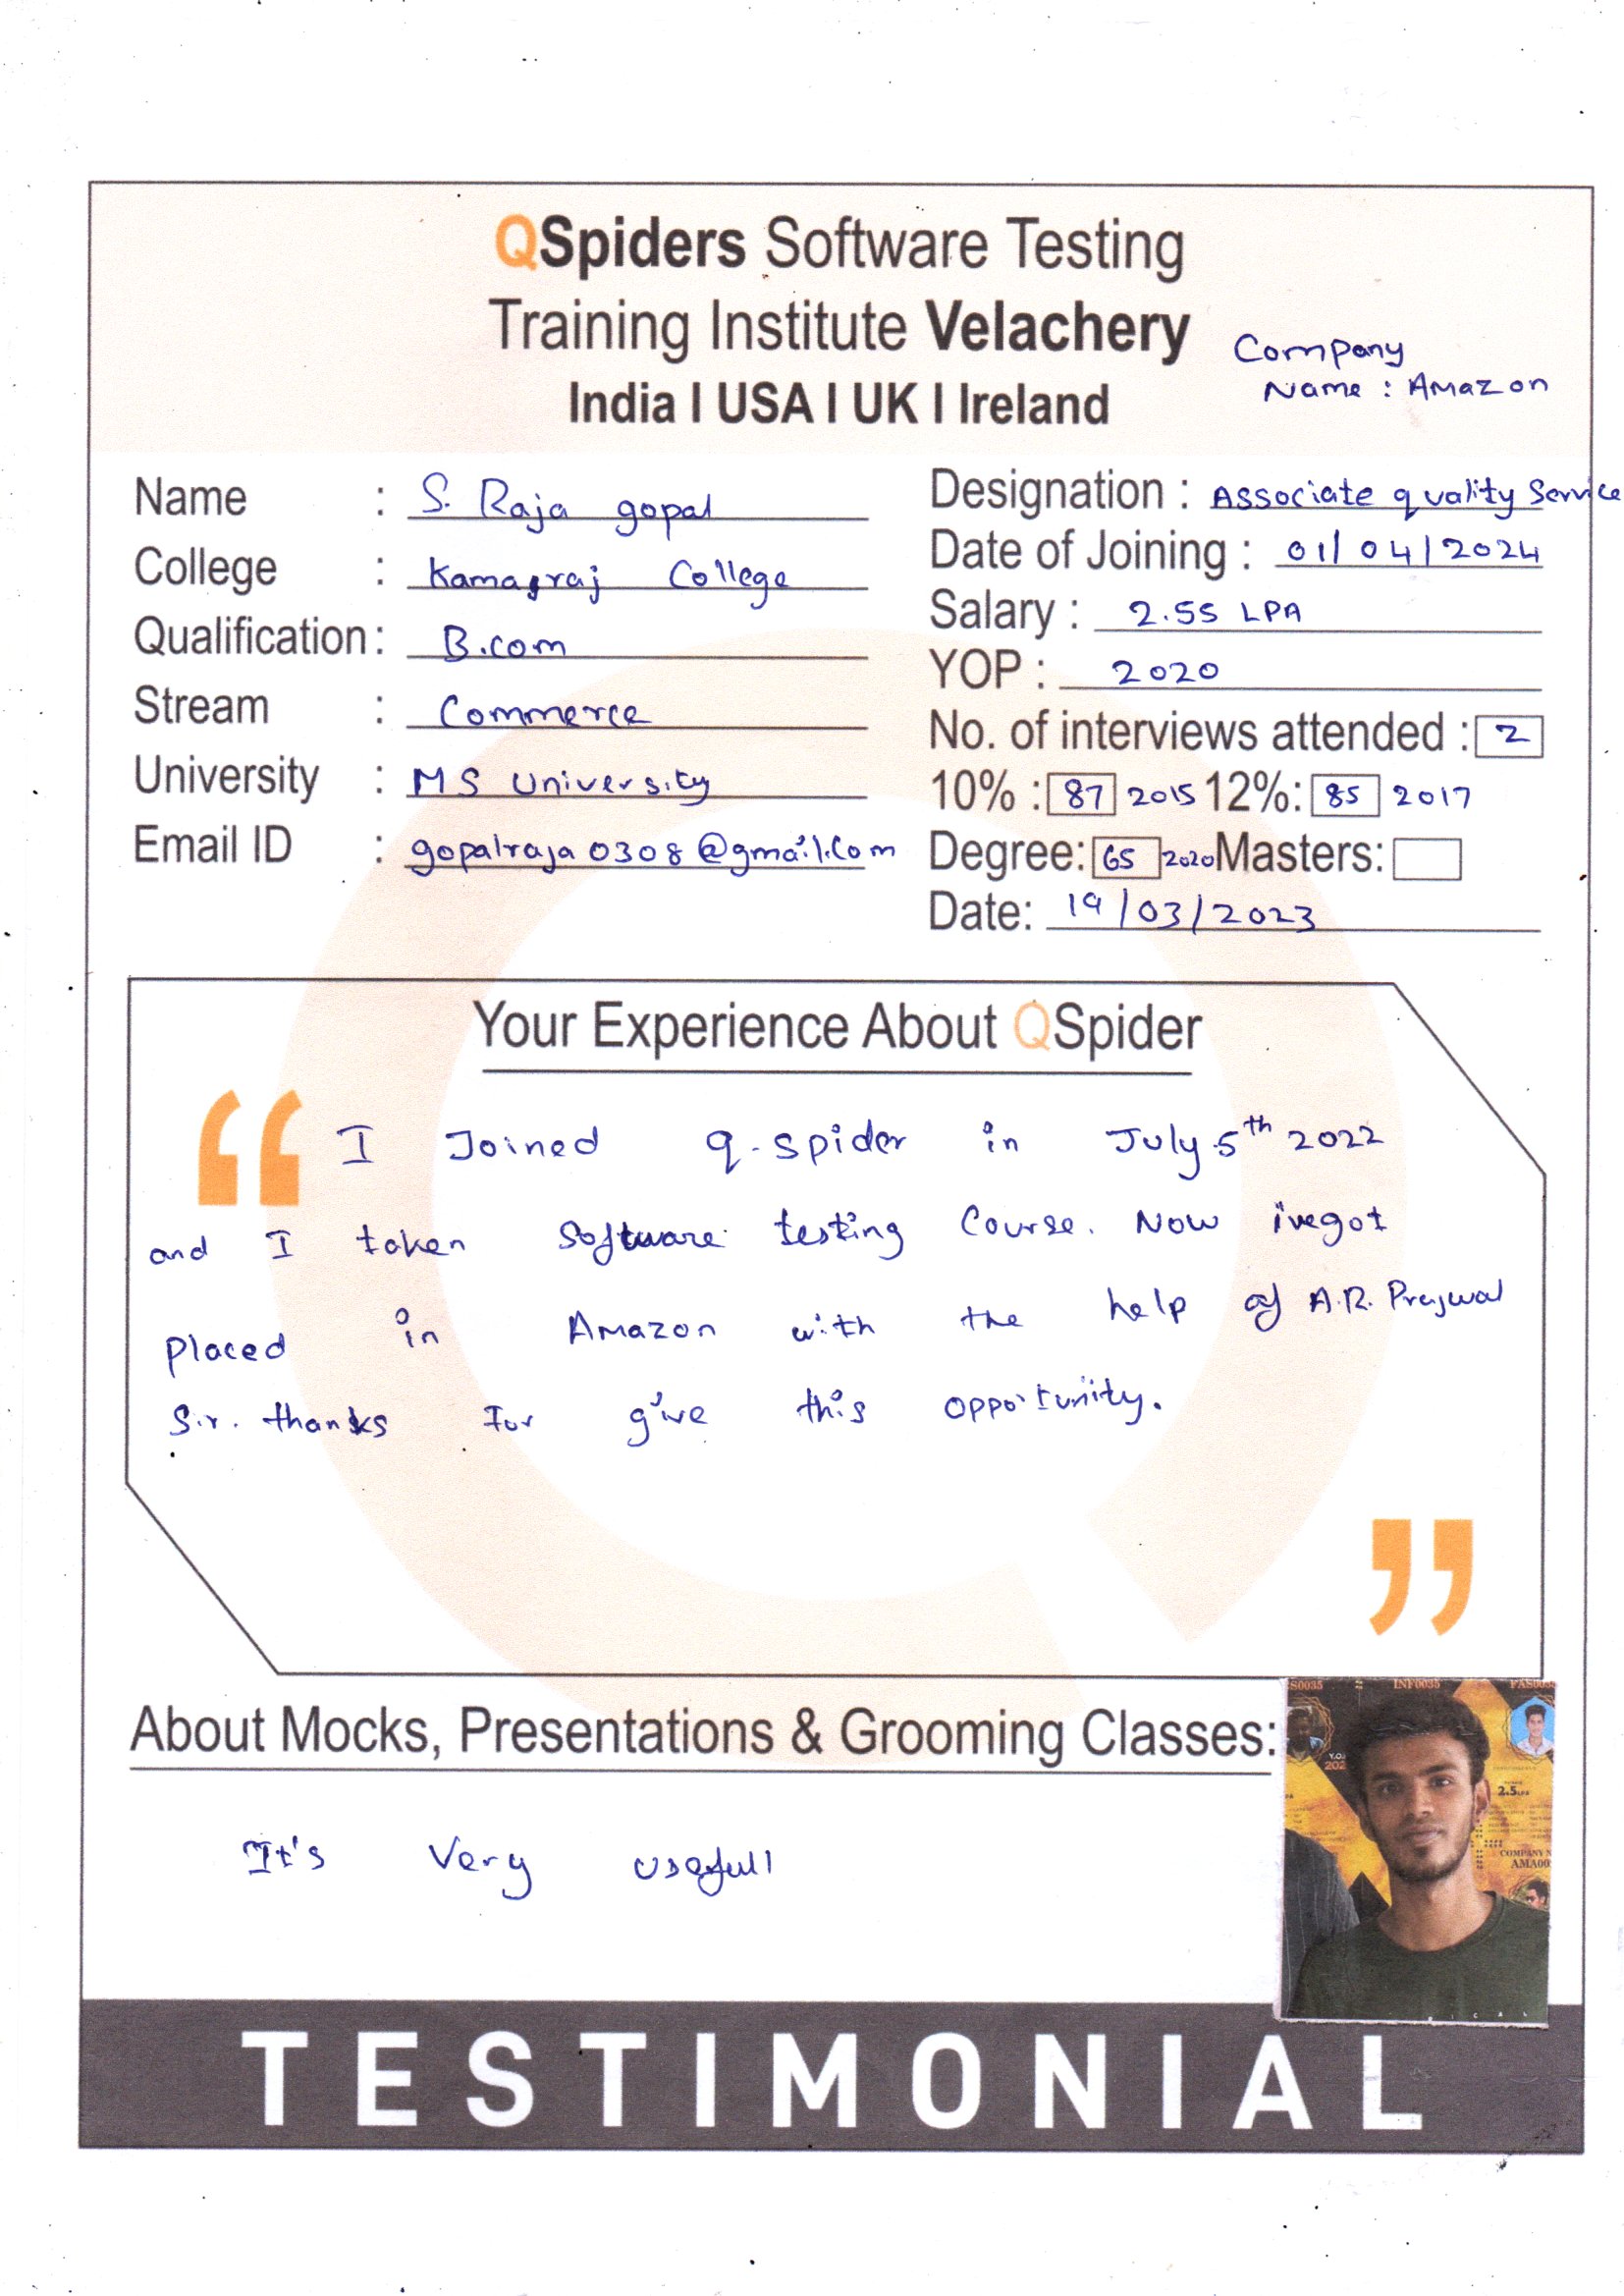 QSpiders Software Testing
Training Institute Velachery
India I USA I UK I Ireland
Company
Name : Amazon
Name : S. Raja gopal
College : Kamaraj College
Qualification : B.com
Stream : Commerce
University : MS University
Email ID : gopalraja0308@gmail.com
Designation : Associate quality Service
Date of Joining : 01/04/2024
Salary : 2.55 LPA
YOP : 2020
No. of interviews attended : 2
10% : 87 2015 12%: 85 2017
Degree: 65 2020 Masters:
Date: 19/03/2023
Your Experience About QSpider
“ I Joined q-spider in July 5th 2022
and I taken Software testing Course. Now ivegot
placed in Amazon with the help of A.R. Prajwal
Sir. thanks For give this opportuniity.
”
About Mocks, Presentations & Grooming Classes:
It's Very usefull
S0035 INF0035 FAS0035
Y.O.
202
2.5LPA
COMPANY N
AMA00
TESTIMONIAL